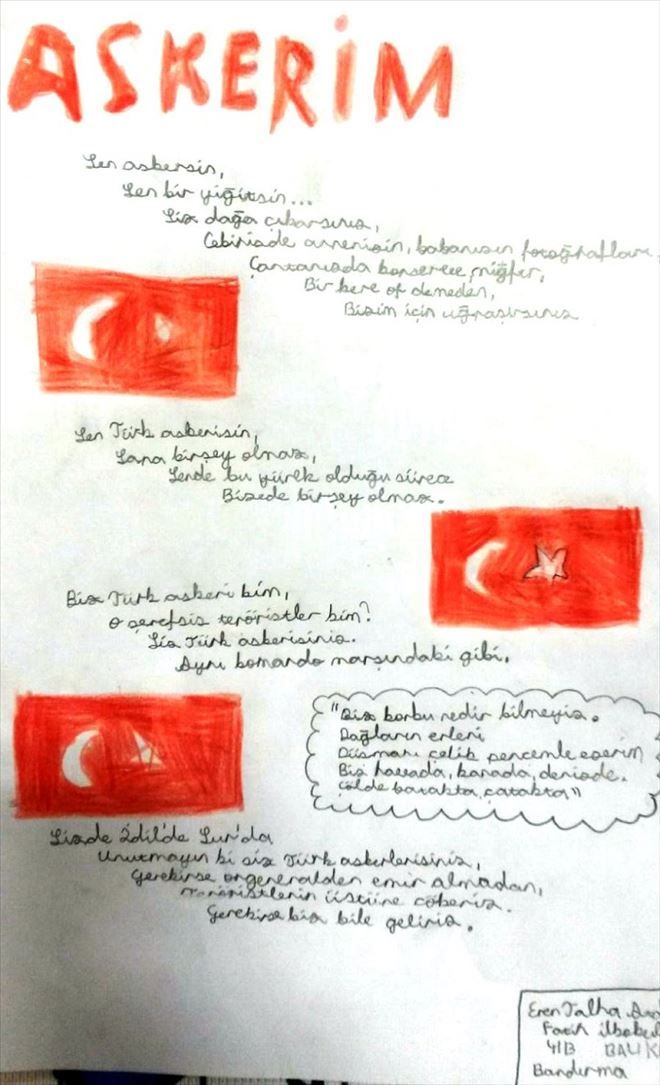 ASKERİM
Sen askersin,
Sen bir yiğitsin...
Siz dağa çıkarsınız,
Cebinizde annenizin, babanızın fotoğrafları,
Çantanızda konserve, miğfer,
Bir kere of demeden,
Bizim için uğraşırsınız
Sen Türk askerisin,
Sana birşey olmaz,
Sende bu yürek olduğu sürece
Bizede birşey olmaz.
Biz Türk askeri kim,
o şerefsiz teröristler kim?
Siz Türk askerisiniz.
Aynı komando marşındaki gibi.
"Biz korku nedir bilmeyiz.
Dağların erleri
Düşmanı çelik pençemle ezerim
Biz havada, karada, denizde.
Çölde batakta, çatakta"
Sizde İdil'de Sur'da
Unutmayın ki siz Türk askerlerisiniz,
Gerekirse orgeneralden emir almadan,
Teröristlerin üstüne çökeriz.
Gerekirse biz bile geliriz.
Eren Talha
Fatih
4/B
Bandırma